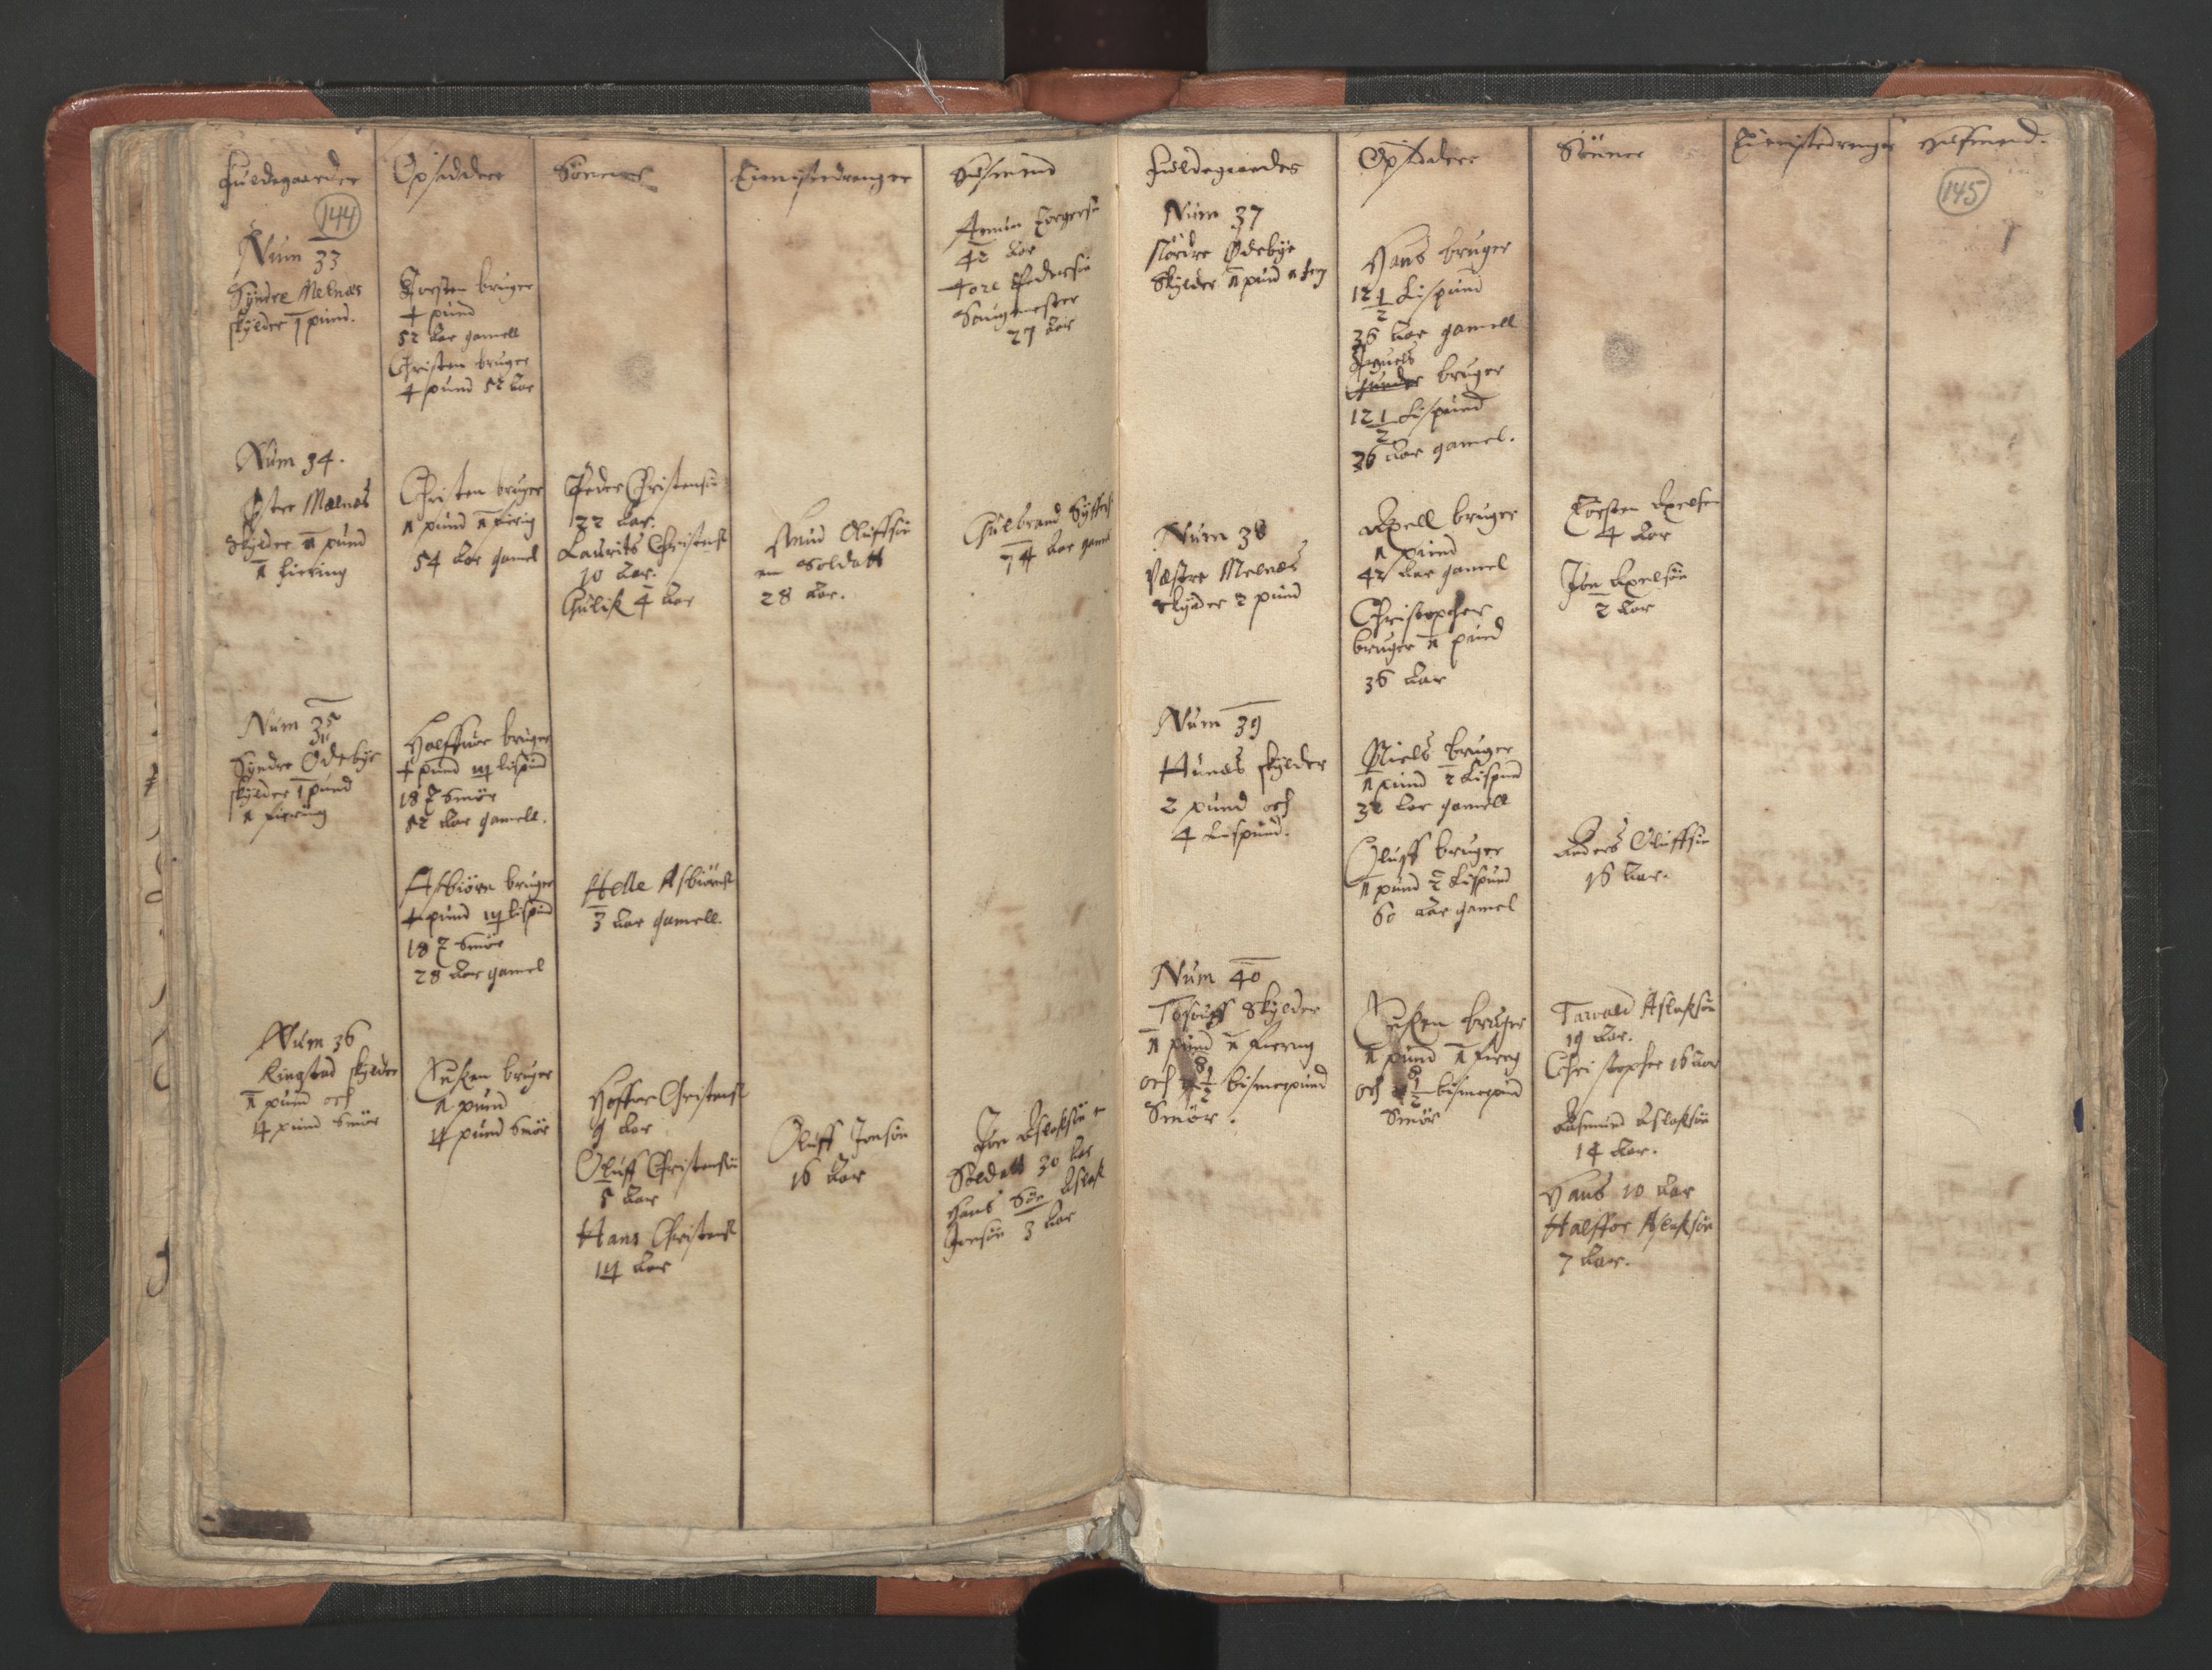 Fuldegaarder
Opsiddere
Sönner
Tienistedrenger
Husmend
144
Num 33
Syndre Melnes
skylder 1 pund.
Torsten bruger
½ pund
52 aar gamell
Christen bruger
½ pund 52 aar
42 aar
Tore Pedersön
Saugmester
27 aar
Num 34.
Østre Mælnes
Skylder 1 pund
1 fiering
Christen bruger
1 pund 1 fierig
54 aar gamel
Peder Christensön
22 aar.
Laurits Christens
10 aar.
Gulik 4 aar
Amund Oluffsön
en Soldatt
28 aar.
Gulbrand
74 aar gamel
Num 35
Syndre Odebye
skylder 1 pund
1 fiering
Halffuor bruger
½ pund 14 lispund
18 Smör
52 aar gamell.
Asbiörn bruger
½ pund 14 lispund
18 Smör
28 aar gamel
Helle Asbiörns
3 aar gamell.
Num 36
Ringstad skylder
1 pund och
4 pund Smör
bruger
1 pund
4 pund Smör
Christens
9 aar
Oluff Christensön
5 aar
Hans Christens
14 aar
Oluff Jonsön
16 aar
Jon Aslaksön en
Soldatt 30 aar
Hans Sön Aslak
Jonsön 3 aar
Fuldegaarder
Opsiddere
Sönner
Tienistedrenger
Husmend.
145
Num 37
Nordre Ødebye
Skylder 1 pund 1 fieri
Hans bruger
12 1/2 Lispund
36 aar gamell
bruger
12 1/2 Lispund
36 aar gamel.
Num 38
Vestre Melnes
skylder 2 pund
Axell bruger
1 pund
42 aar gamel
Christopher
bruger 1 pund
36 aar
Torsten Axelsen
4 aar
Jon Axelsön
2 aar
Num 39
Hunes skylder
2 pund och
4 Lispund.
Niels bruger
1 pund 2 Lispund
32 aar gamell
Oluff bruger
1 pund 2 Lispund
60 aar gamel
Anders Oluffsön
16 aar.
Num 40
skylder
1 pund 1 fierng
och 8 1/2 bismerpund
Smör.
bruger
1 pund 1 fierg
och 8 1/2 bismerpund
Smör
Tarald Aslaksön
19 aar.
Christopher 16 aar
Aasmund Aslaksön
14 aar.
Hans 10 aar
Halffor Aslaksön
7 aar.